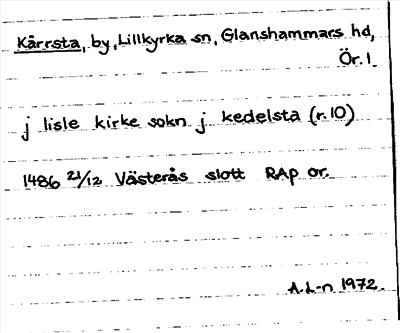 Kärrsta, by, Lillkyrka sn, Glanshammars hd,
Ör. l.
j lisle kirke sokn j kedelsta (r. 10)
1486 21/12 Västerås slott RAp or.
A.L-n 1972.